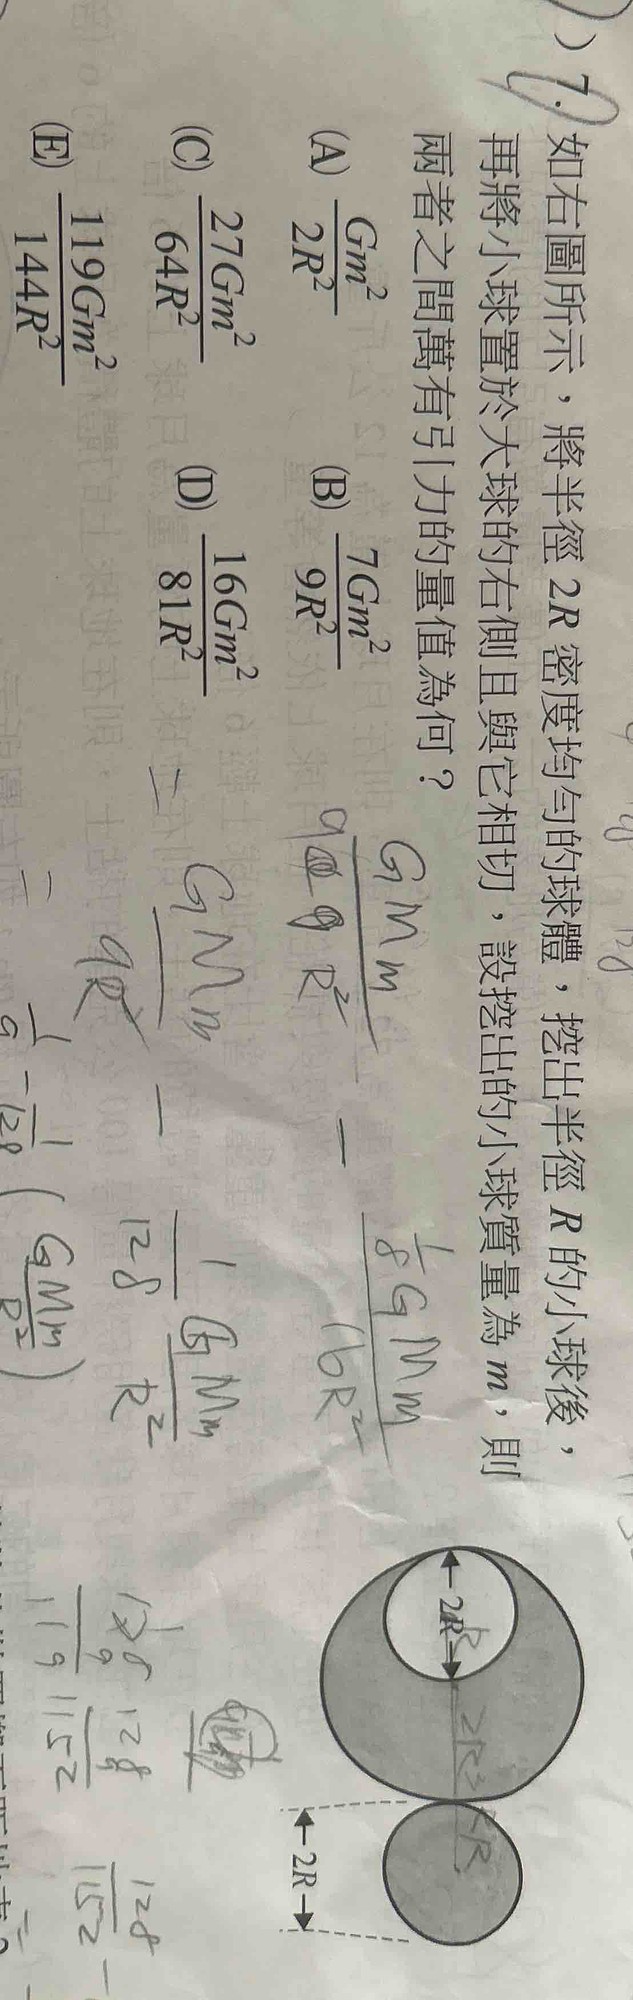 ) 7. 如右圖所示，將半徑 2R 密度均勻的球體，挖出半徑 R 的小球後，
再將小球置於大球的右側且與它相切，設挖出的小球質量為 m，則
兩者之間萬有引力的量值為何？
(A) Gm²/2R² (B) 7Gm²/9R²
(C) 27Gm²/64R² (D) 16Gm²/81R²
(E) 119Gm²/144R²
2R
2R
GMm/9R² - 1/8 GMm/16R²
= GMm/9R² - 1/128 GMm/R²
= 1/9 - 1/128 (GMm/R²)
128
9
119
128
9
1152
128/1152 -